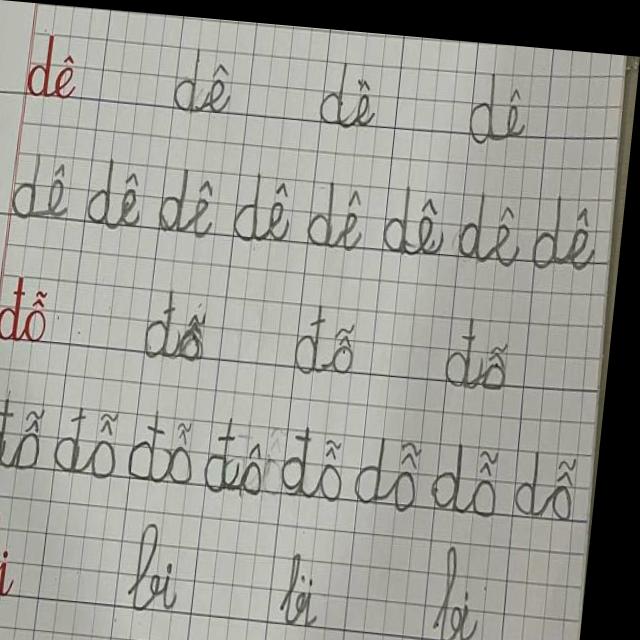 dê dê dê dê
dê dê dê dê dê dê dê dê
đỗ đỗ đỗ đỗ
đỗ đỗ đỗ đô đỗ dỗ dỗ dỗ
bi bi bi